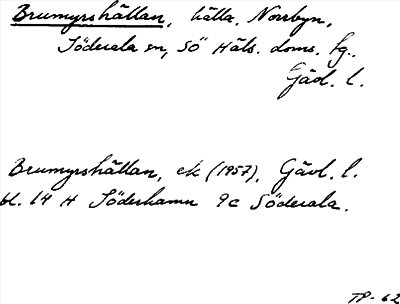 Brumyrshällan, hälla, Norrbyn,
Söderala sn, Sö Häls. doms. fg.,
Gävl. l.
Brumyrshällan, ek (1957), Gävl. l.
bl. 14 H Söderhamn 9c Söderala.
TP-62